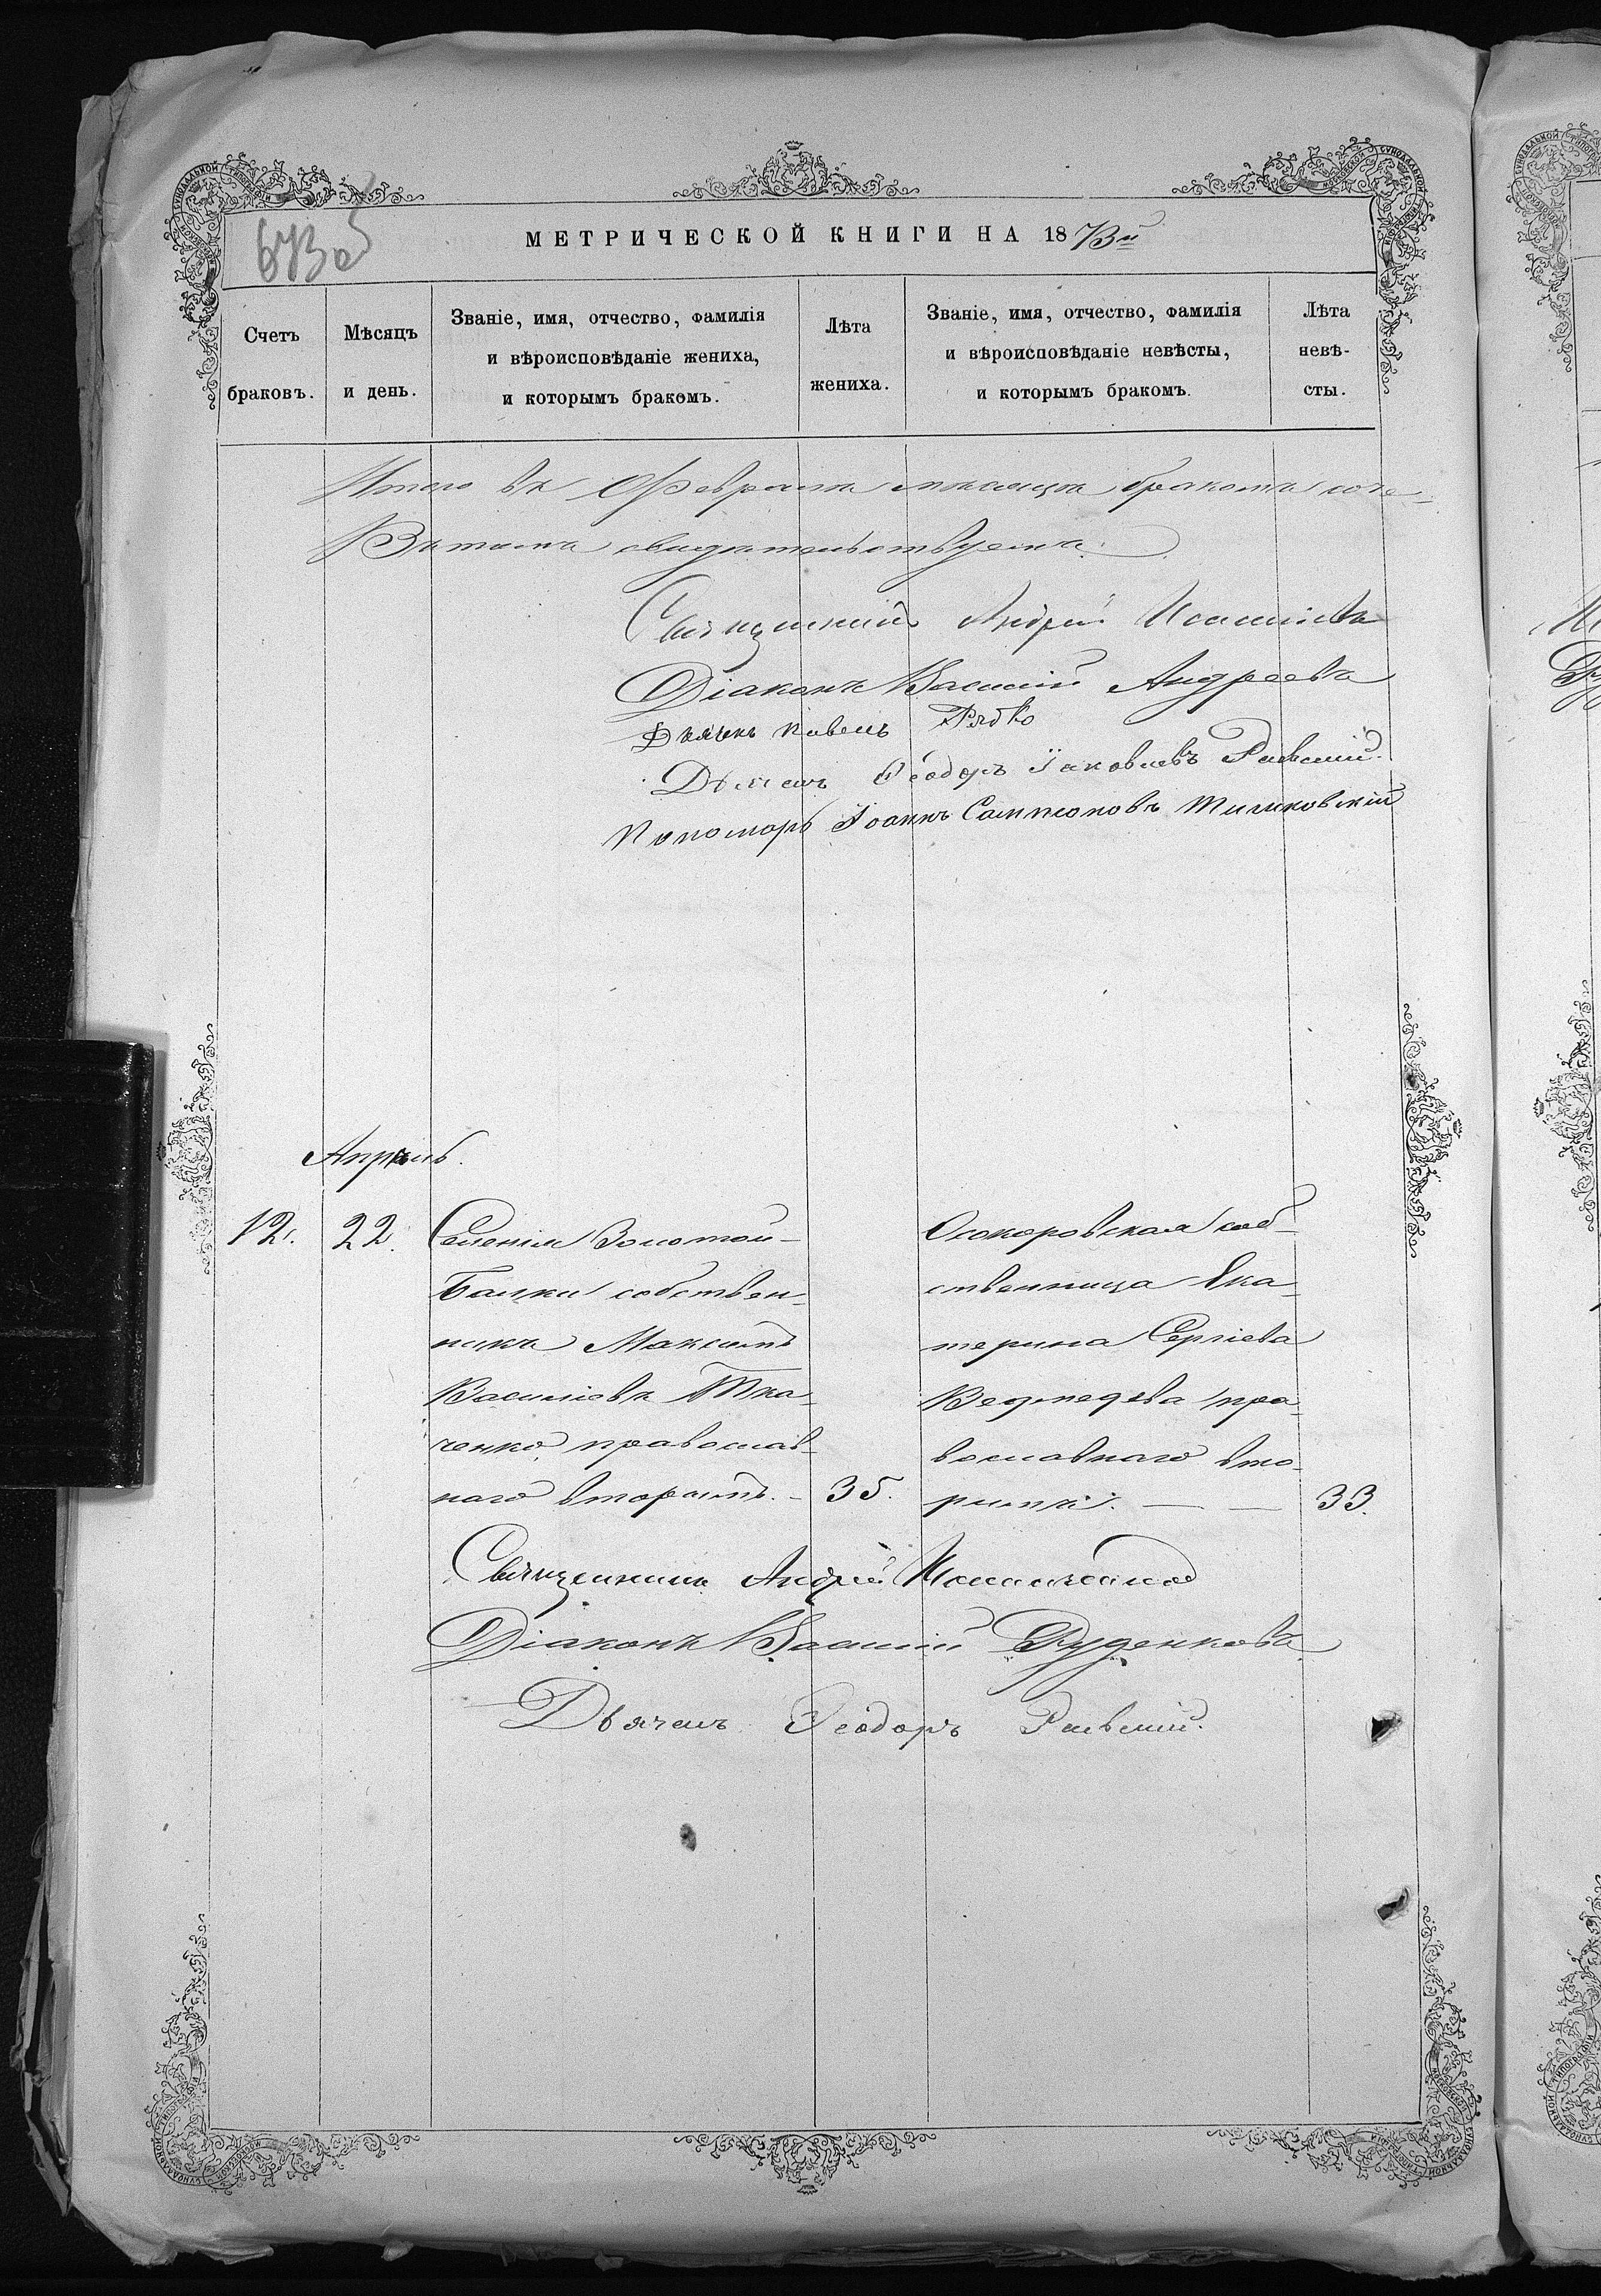 673 об
МЕТРИЧЕСКОЙ КНИГИ НА 1873й
Счетъ браковъ.
Мѣсяцъ и день.
Званіе, имя, отчество, фамилія
и вѣроисповѣданіе жениха,
и которымъ бракомъ.
Лѣта жениха.
Званіе, имя, отчество, фамилія
и вѣроисповѣданіе невѣсты,
и которымъ бракомъ.
Лѣта невѣ-
сты.
Итого въ Февралѣ мѣсяцѣ бракомъ соче-
Въ томъ свидѣтельствуемъ:
Священникъ Андрей
Діаконъ Василій Андреевъ
Дьячекъ Павелъ Рябко
Дьячекъ Ѳеодоръ Іаковлевъ Раевскій.
Пономарь Іоаннъ Сампсоновъ Тимковскій
Апрѣль.
12.
22.
Селенія Золотой-
Балки собствен-
никъ Максимъ
Васильевъ Тка-
ченко, православ-
наго вторымъ. -
35.
Осокоровская соб-
ственница Ека-
терина Сергіева
Ведмедева пра-
вославнаго вто-
рымъ. — —
33.
Священникъ Андрей
Діаконъ Василій Руденковъ
Дьячекъ Ѳеодоръ Раевскій.